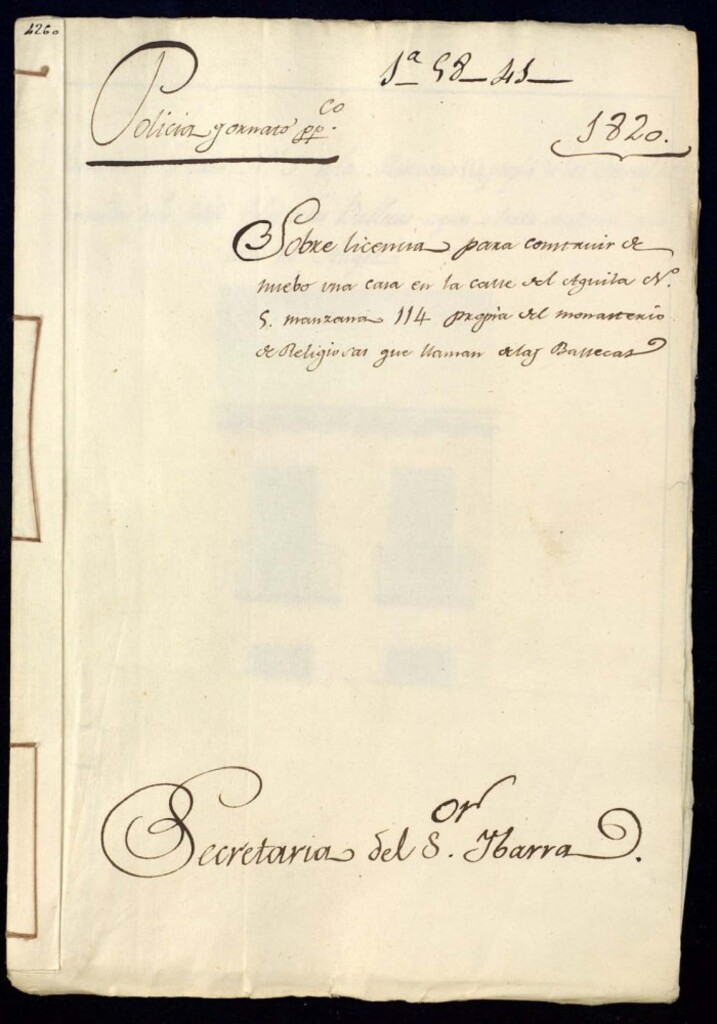 426.
1ª 58-41
Policia y ornato ppco.
1820.
Sobre licencia para construir de
nuebo una casa en la calle del Aguila Nº.
5. manzana 114 propia del monasterio
de Religiosas que llaman delas Ballecas
Secretaria del Sor. Ybarra.